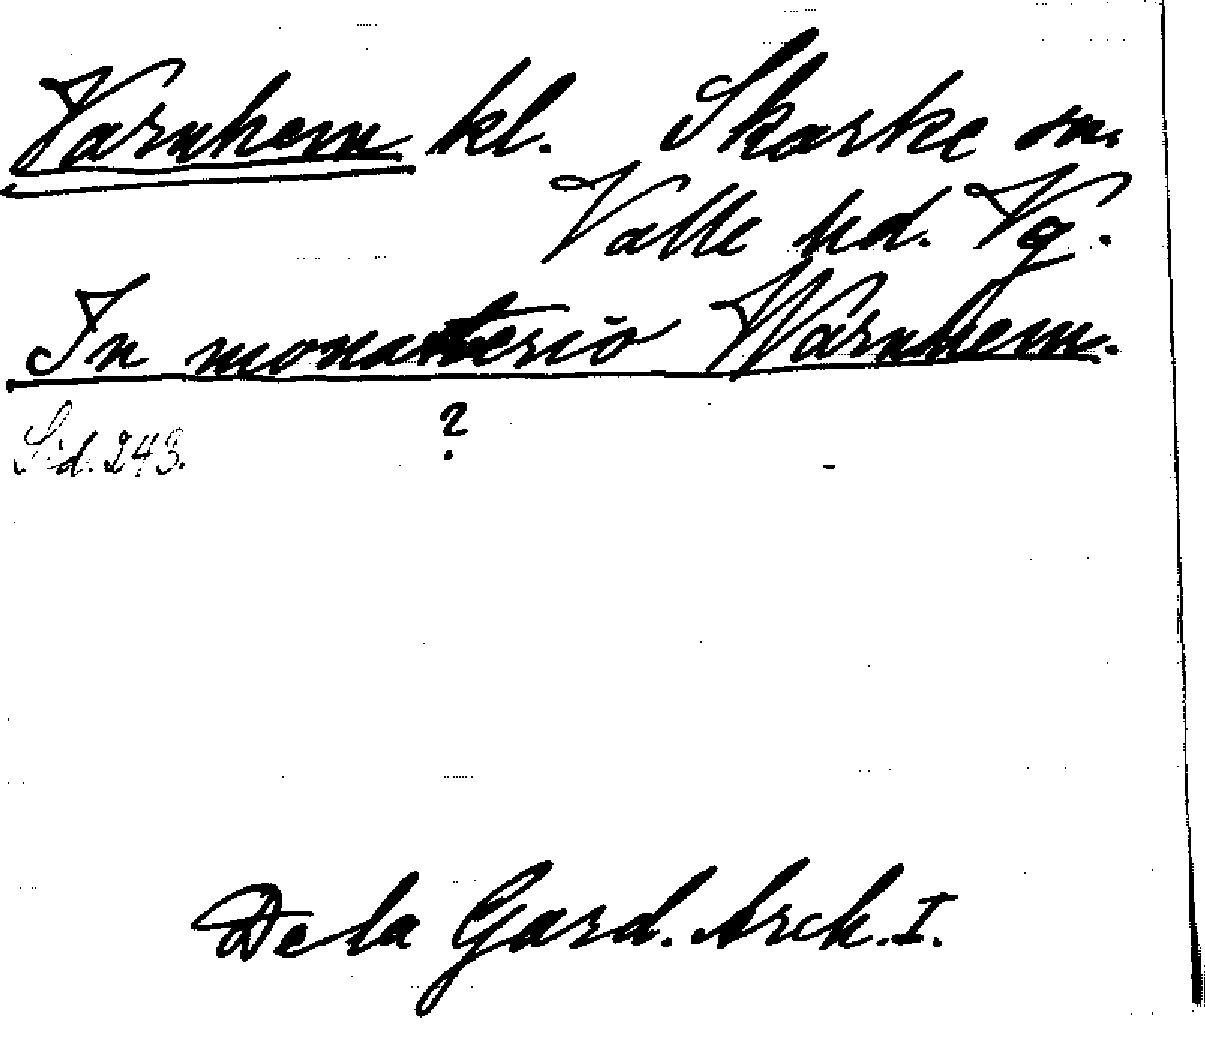 Varnhem kl. Skarke sn.
Valle hd. Vg.
In monasterio Warnhem.
?
Sid. 243.
De la Gard. Arch. I.